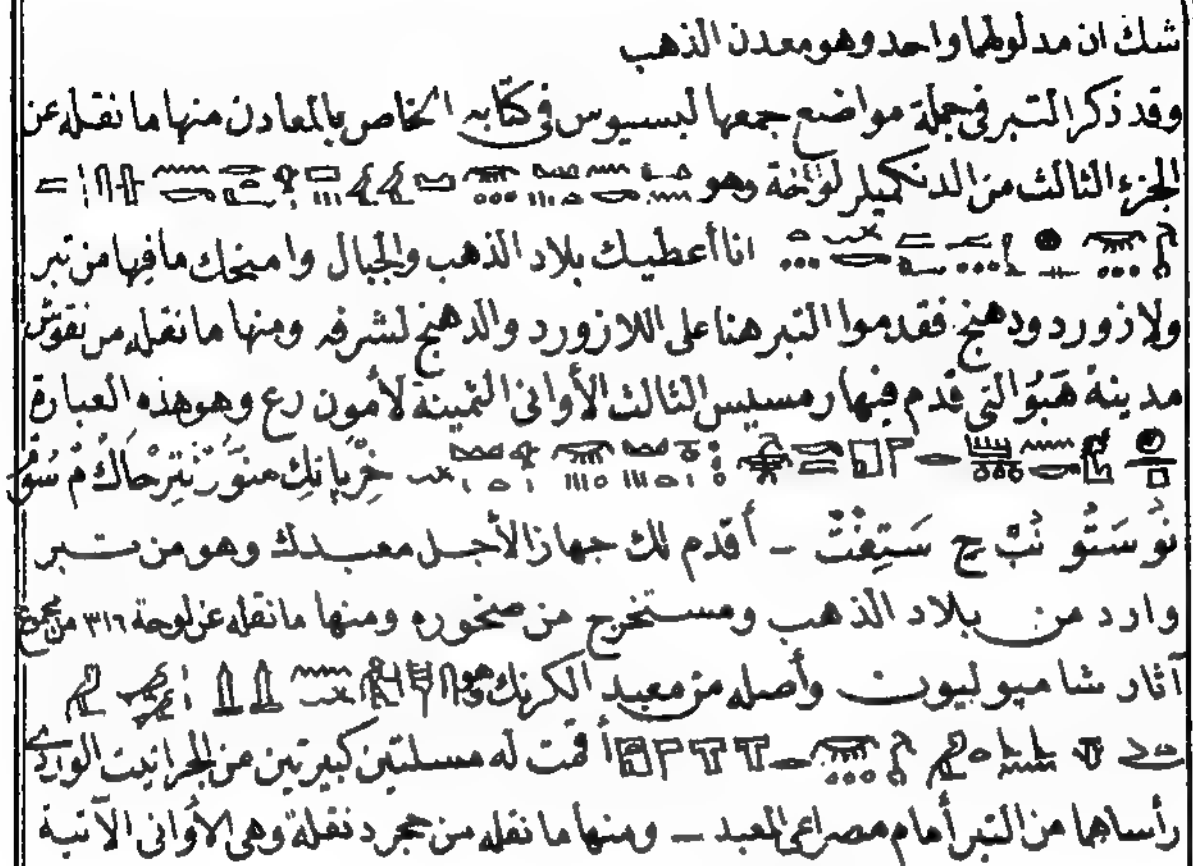 شك ان مدلولهما واحد وهو معدن الذهب
وقد ذكر التبر في جملة مواضع جمعها لبسيوس في كتابه الخاص بالمعادن منها ما نقله عن
الجزء الثالث من الدنكميلر لوحة وهو
انا أعطيك بلاد الذهب والجبال وامنحك ما فيها من تبر
ولازورد ودهنج فقدموا التبر هنا على اللازورد والدهنج لشرفه ومنها ما نقله من نقوش
مدينة هَبُو التي قدم فيها رمسيس الثالث الأواني الثمينة لأمون رع وهو هذه العبارة
أقدم لك جهازا لأجل معبدك وهو من تبر
وارد من بلاد الذهب ومستخرج من صخوره ومنها ما نقله عن لوحة ٣١٦ من مجموع
آثار شامبوليون وأصله من معبد الكرنك وهو
أقمت له مسلتين كبيرتين من الجرانيت الوردى
رأساهما من التبر أمام مصراعى المعبد – ومنها ما نقله من حجر دنقلة وهى الأوانى الآتية